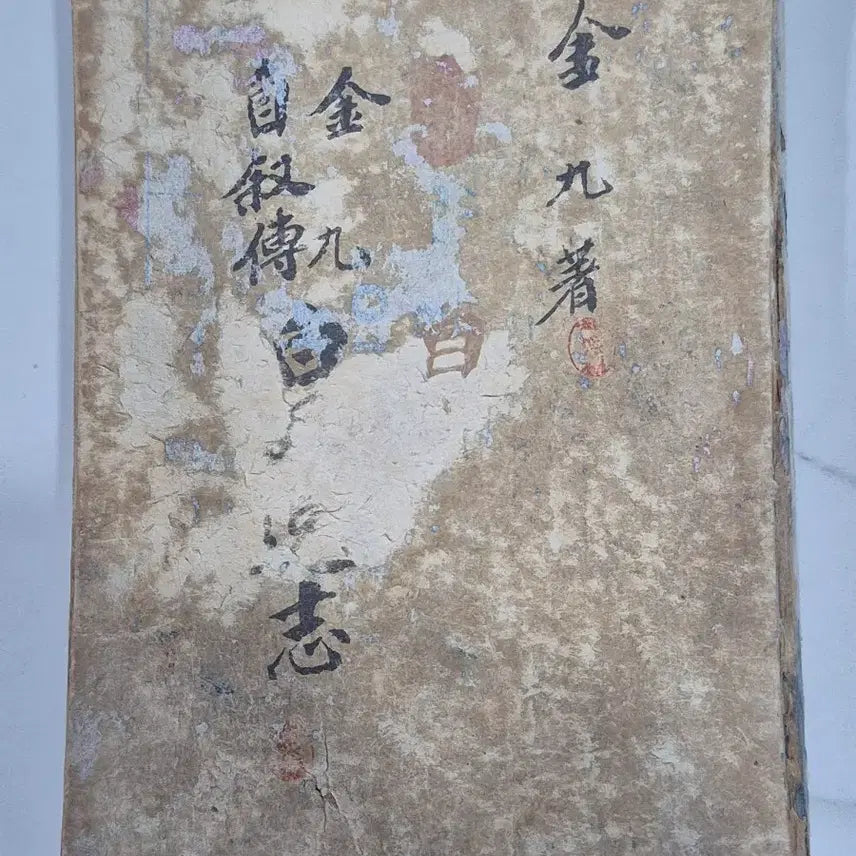 金九著
金九
自叙傳
白
志